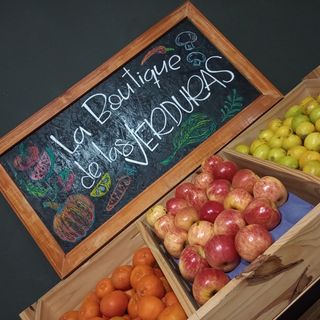 La Boutique
de las VERDURAS